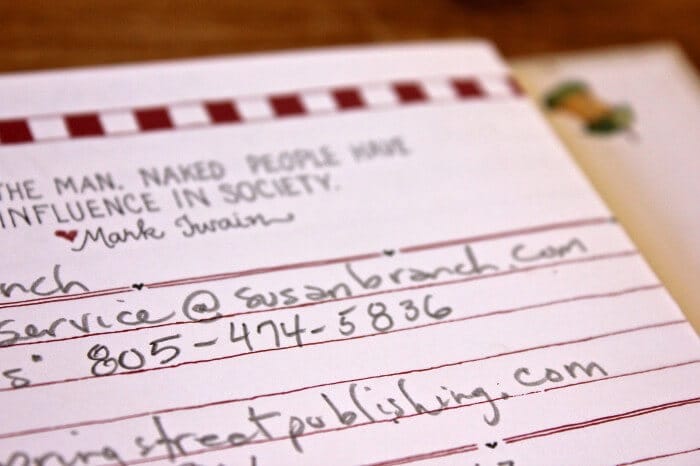 THE MAN. NAKED PEOPLE HAVE
INFLUENCE IN SOCIETY.
Mark Twain
nch
service@susanbranch.com
s' 805-474-5836
ringstreetpublishing.com